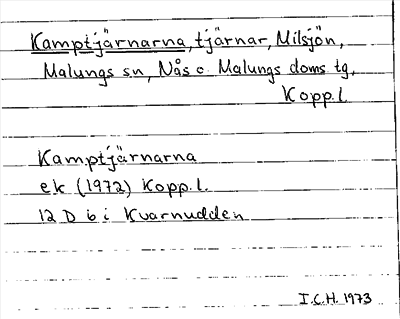 Kamptjärnarna, tjärnar, Milsjön,
Malungs sn, Nås o Malungs doms tg,
Kopp.l.
Kamptjärnarna
ek (1972) Kopp.l.
12 D 6 i Kvarnudden
I.C.H. 1973